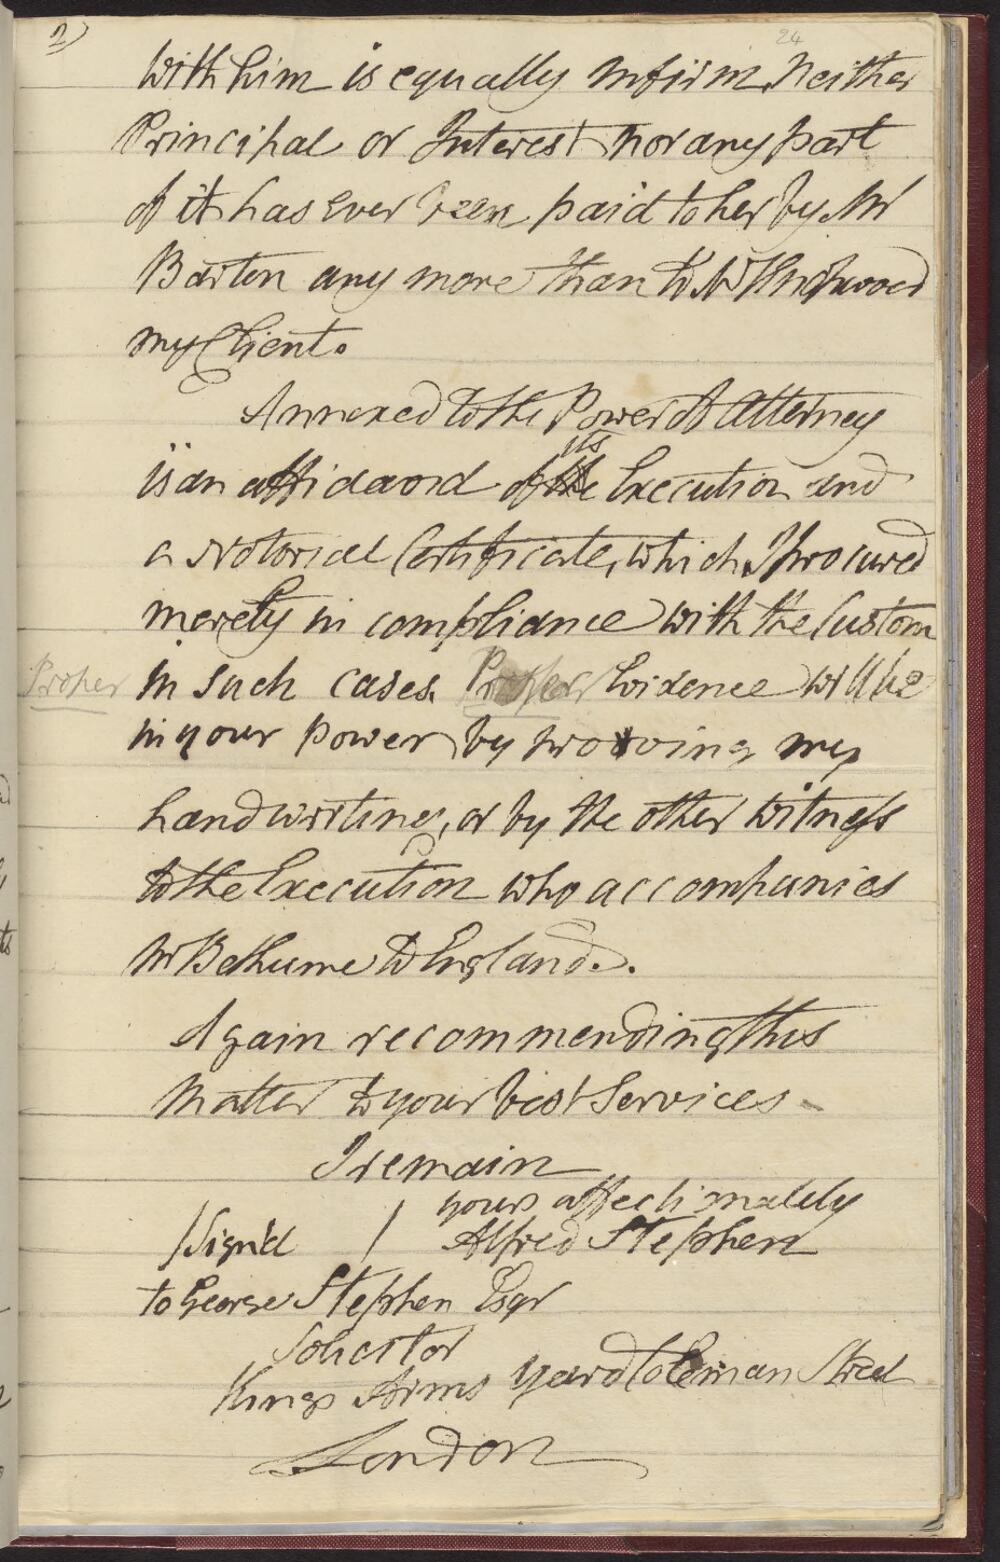 2)
24
with him is equally infirm, Neither
Principal or Interest nor any part
of it has ever been paid to her by Mr
Barton any more than to Mr
my Client.
Annexed to the Power of Attorney
its
is an affidavid of the Execution and
a Notorial Certificate, which I procured
merely in compliance with the Custom
Proper
in such cases. Proper Evidence will be
in your power by prooving my
handwriting, or by the other Witness
to the Execution who accompanies
Mr Bethune to England..
Again recommending this
Matter to your best Services
I remain
yours affectionately
/Signd / Alfred Stephen
to George Stephen Esqr
Solicitor
Kings Arms Yard Coleman Street
London